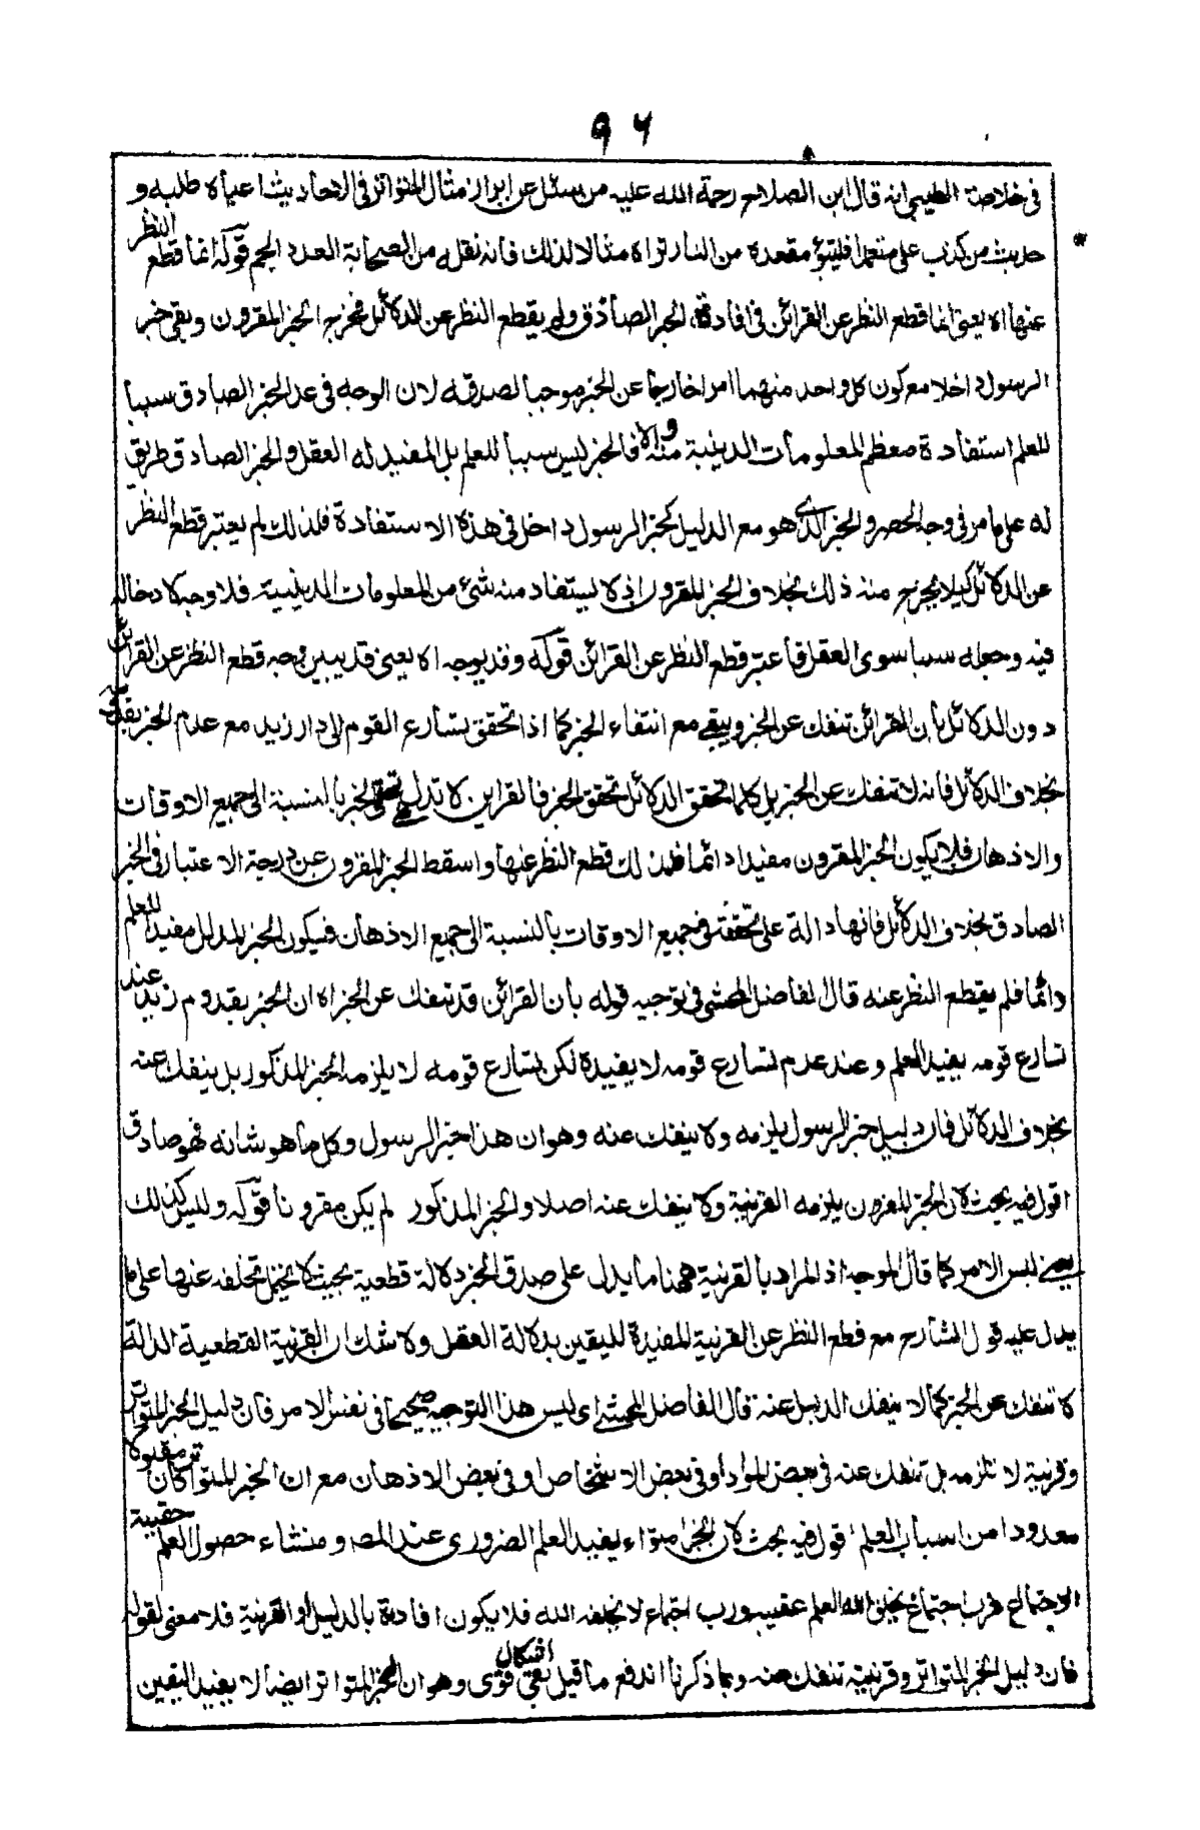 ٩٦
فى خلاصة الطيبى انه قال ابن الصلاح رحمة الله عليه من سئل عن ابراز مثال المتواتر فى الاحاديث اعياه طلبه و
حديث من كذب على متعمدا فليتبوّ مقعده من النار نراه مثالا لذلك فانه نقله من الصحابة العدد الجم قوله انما قطع النظر
عنها اه يعنى انما قطع النظر عن القرائن فى افادة الخبر الصادق ولم يقطع النظر عن الدلائل فخرج الخبر المقرون وبقى خبر
الرسول داخلا مع كون كل واحد منهما امرا خارجا عن الخبر موجبا لصدقه لان الوجه فى عد الخبر الصادق سببا
للعلم استفادة معظم المعلومات الدينية منه والا فالخبر ليس سببا للعلم بل المفيد له العقل والخبر الصادق طريق
له على ما مر فى وجه الحصر والخبر الذى هو مع الدليل كخبر الرسول داخل فى هذه الاستفادة فلذلك لم يعتبر قطع النظر
عن الدلائل كيلا يخرج منه ذلك بخلاف الخبر المقرون اذ لا يستفاد منه شئ من المعلومات الدينية فلا وجه لادخاله
فيه وجعله سببا سوى العقل فاعتبر قطع النظر عن القرائن قوله وقد يوجه اه يعنى قد يبين وجه قطع النظر عن القرائن
دون الدلائل بان القرائن تنفك عن الخبر ويبقى مع انتفاء الخبر كما اذا تحقق تسارع القوم الى دار زيد مع عدم الخبر بقدومه
بخلاف الدلائل فانه لا تنفك عن الخبر بل كلما تحقق الدلائل تحقق الخبر فالقراين لا تدل على تحقق الخبر بالنسبة الى جميع الاوقات
والاذهان فلا يكون الخبر المقرون مفيدا دائما فلذلك قطع النظر عنها واسقط الخبر المقرون عن درجة الاعتبار فى الخبر
الصادق بخلاف الدلائل فانها دالة على تحققه فى جميع الاوقات بالنسبة الى جميع الاذهان فيكون الخبر المدلل مفيد للعلم
دائما فلم يقطع النظر عنه قال الفاضل المحشى فى توجيه قوله بان القرائن قد تنفك عن الخبر اه ان الخبر بقدوم زيد عند
تسارع قومه يفيد العلم وعند عدم تسارع قومه لا يفيده لكن تسارع قومه لا يلزمه الخبر المذكور بل ينفك عنه
بخلاف الدلائل فان دليل خبر الرسول يلزمه ولا ينفك عنه وهو ان هذا خبر الرسول وكل ما هو شانه فهو صادق
اقول فيه بحث لان الخبر المقرون يلزمه القرينة ولا ينفك عنه اصلا والخبر المذكور لم يكن مقرونا قوله وليس كذلك
يعنى ليس الامر كما قال الموجه اذ المراد بالقرينة ههنا ما يدل على صدق الخبر دلالة قطعية بحيث لا يحتمل تخلفه عنها على ما
يدل عليه قول الشارح مع قطع النظر عن القرينة المفيدة لليقين بدلالة العقل ولا شك ان القرينة القطعية الدالة
لا تنفك عن الخبر كما لا ينفك الدليل عنه قال الفاضل المحشى اى ليس هذا التوجيه صحيحا فى نفس الامر فان دليل الخبر المتواتر
وقرينة لا تلزمه بل تنفك عنه فى بعض المواد او فى بعض الاشخاص او فى بعض الاذهان مع ان الخبر المتواتر كان مقبولا
معدودا من اسباب العلم اقول فيه بحث لان الخبر المتواتر يفيد العلم الضرورى عند المصـ ومنشاء حصول العلم حقيبة
الاجتماع فرب اجتماع يخلق الله العلم عقيبه ورب اجتماع لا يخلقه الله فلا يكون افادة بالدليل او القرينة فلا معنى لقوله
فان دليل الخبر المتواتر وقرينة تنفك عنه وبما ذكرنا اندفع ما قيل بقى اشكال قوى وهو ان الخبر المتواتر ايضا لا يفيد اليقين